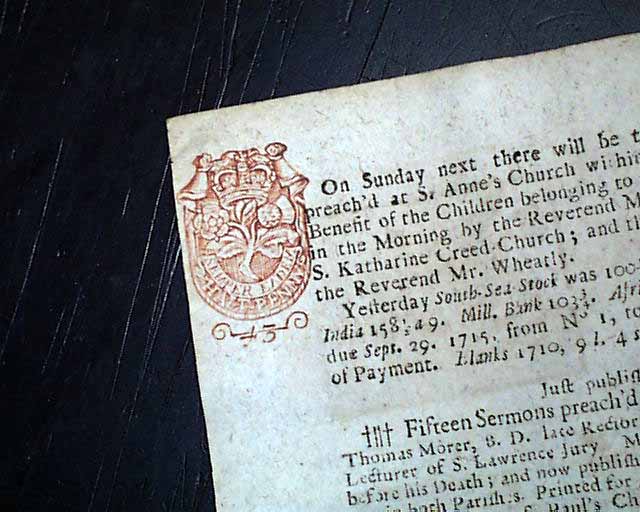 SEMPER EADEM
HALF PENNY
43
On Sunday next there will be t
preach'd at S. Anne's Church within
Benefit of the Children belonging to
in the Morning by the Reverend M
S. Katharine Creed-Church; and t
the Reverend Mr. Wheatly.
Yesterday South-Sea-Stock was 100
India 158, 49. Mill. Bank 103¾. Afri
due Sept. 29. 1715, from N° 1, to
of Payment. Blanks 1710, 9 l. 4 s
Just publis
Fifteen Sermons preach'd
Thomas Morer, B. D. late Rector
Lecturer of S. Lawrence Jury, M
before his Death; and now publish
in both Parishes. Printed for
Paul's Ch